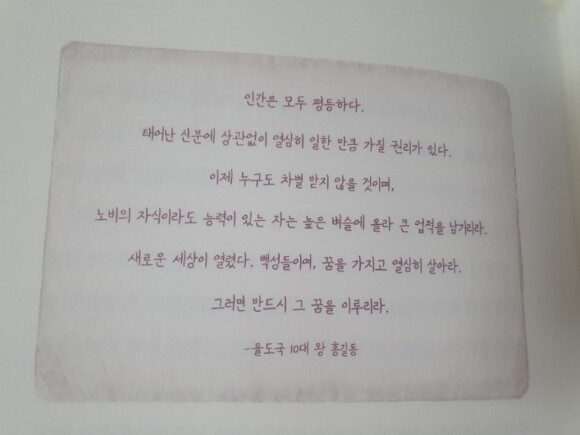 인간은 모두 평등하다.
태어난 신분에 상관없이 열심히 일한 만큼 가질 권리가 있다.
이제 누구도 차별 받지 않을 것이며,
노비의 자식이라도 능력이 있는 자는 높은 벼슬에 올라 큰 업적을 남기리라.
새로운 세상이 열렸다. 백성들이여, 꿈을 가지고 열심히 살아라.
그러면 반드시 그 꿈을 이루리라.
-율도국 10대 왕 홍길동